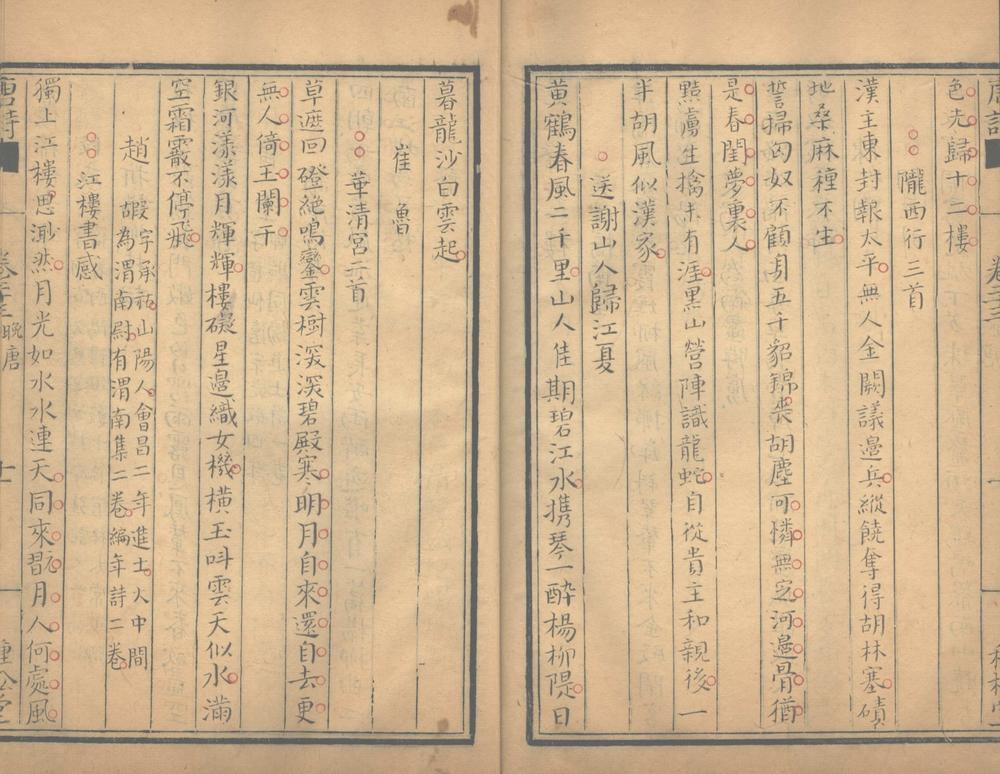 色光歸十二樓
隴西行三首
漢主東封報太平無人金闕議邊兵縱饒奪得胡林塞磧
地桑麻種不生
誓掃匈奴不顧身五千貂錦喪胡塵可憐無定河邊骨猶
是春閨夢裏人
黠虜生擒未有涯黑山營陣識龍蛇自從貴主和親後一
半胡風似漢家
送謝山人歸江夏
黃鶴春風二千里山人佳期碧江水携琴一醉楊柳隄日
暮龍沙白雲起
崔魯
華清宮二首
草遮回磴絕鳴鑾雲樹深深碧殿寒明月自來還自去更
無人倚玉闌干
銀河漾漾月輝輝樓礙星邊織女機橫玉叫雲天似水滿
空霜霰不停飛
趙嘏字承祐山陽人會昌二年進士大中間
為渭南尉有渭南集二卷編年詩二卷
江樓書感
獨上江樓思渺然月光如水水連天同來翫月人何處風
晚唐
十一